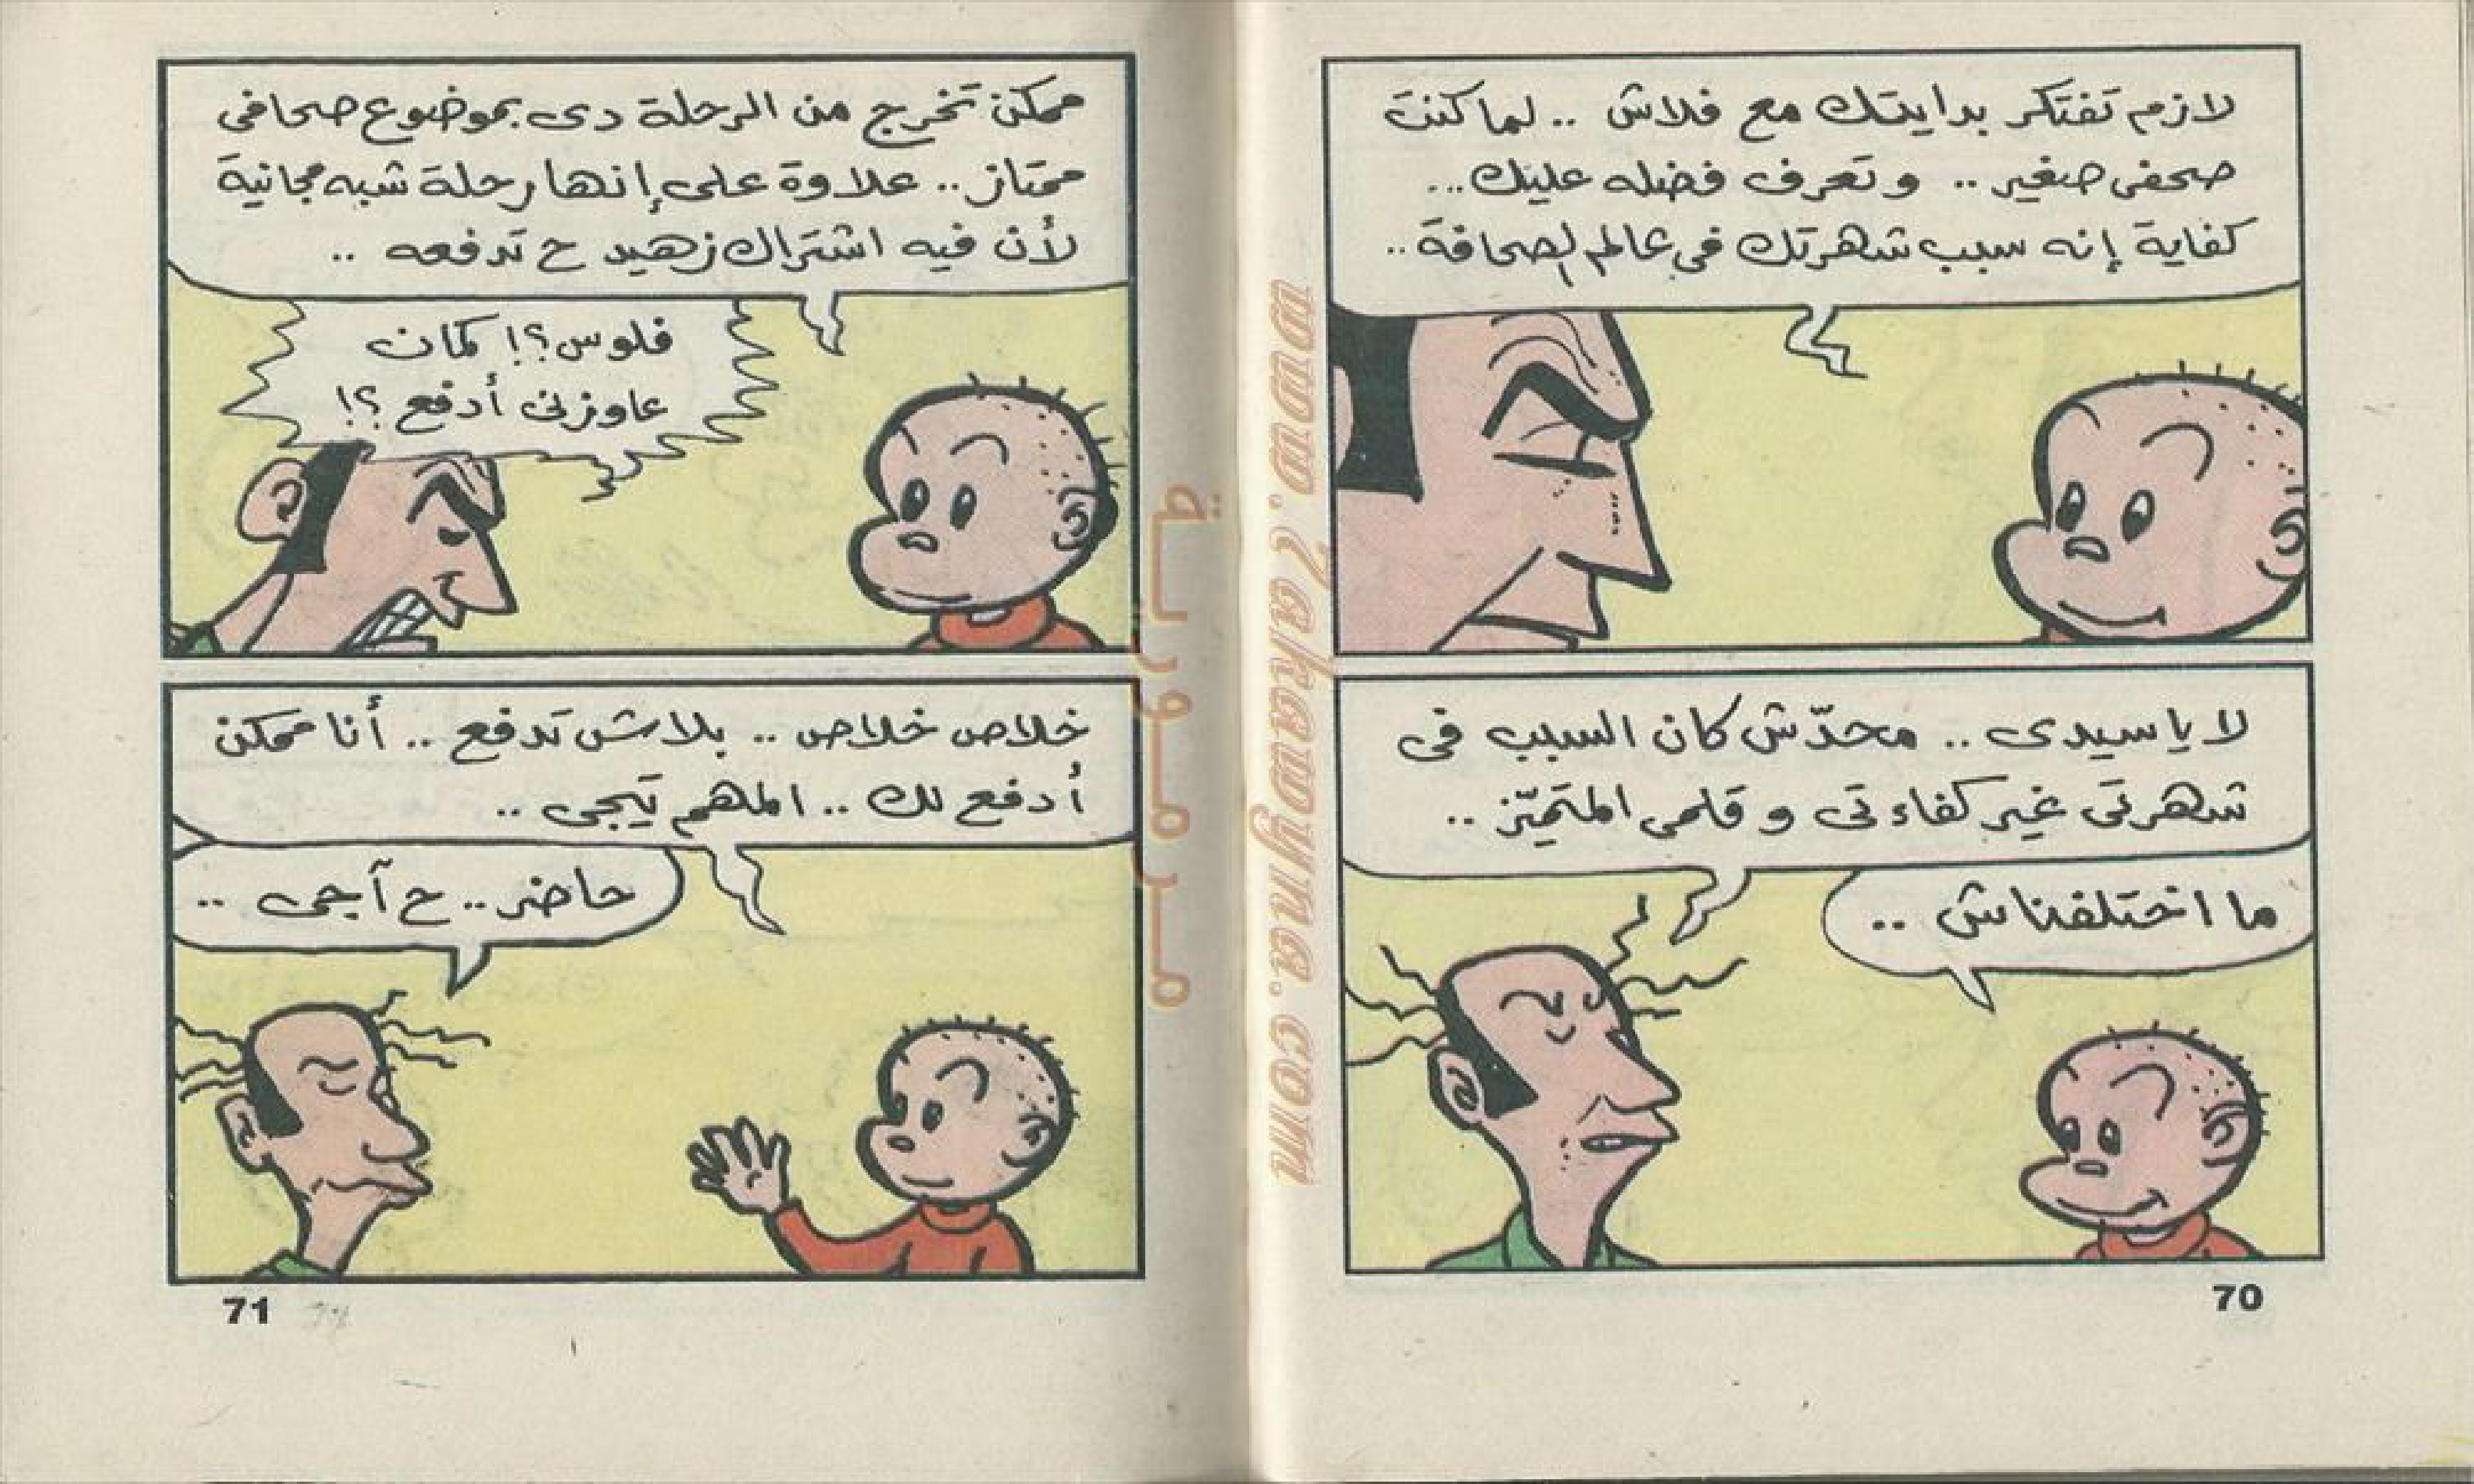 لازم تفتكر بدايتك مع فلاش .. لما كنت
صحفى صغير .. وتعرف فضله عليك ...
كفاية إنه سبب شهرتك فى عالم الصحافة ..
لا يا سيدى .. محدّش كان السبب فى
شهرتى غير كفاءتى و قلمى المتميّز ..
ما اختلفناش ..
70
ممكن تخرج من الرحلة دى بموضوع صحافى
ممتاز .. علاوة على إنها رحلة شبه مجانية
لأن فيه اشتراك زهيد ح تدفعه ..
فلوس؟! كمان
عاوزنى أدفع ؟!
خلاص خلاص .. بلاش تدفع .. أنا ممكن
أدفع لك .. المهم تيجى ..
حاضر .. ح آجى ..
71
مرمورية
www.zakawyna.com